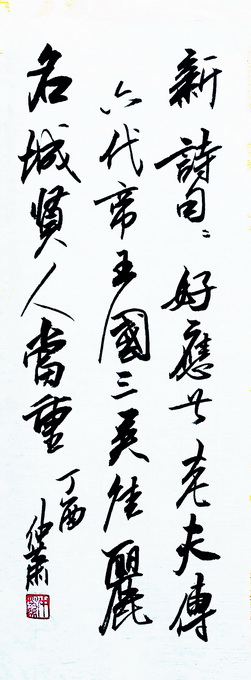 新詩句々好應老夫傳
六代帝王國三吳佳麗
名城賢人當重
丁酉